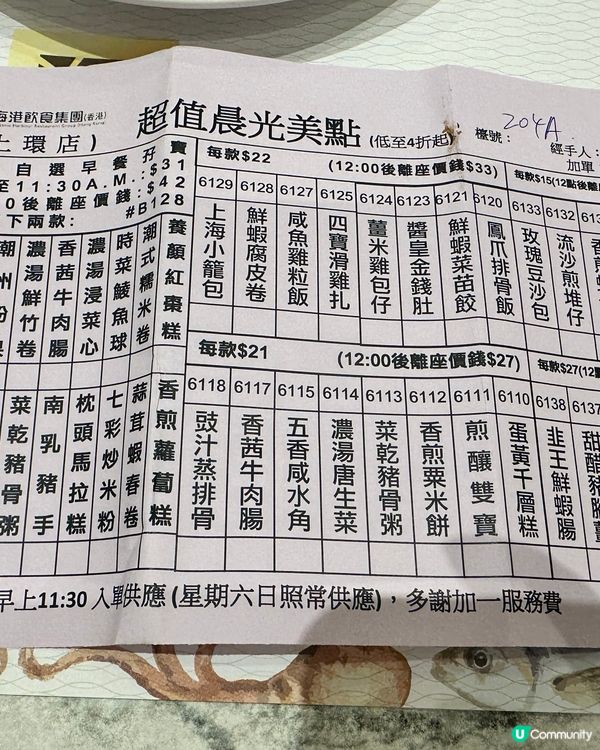 海港飲食集團(香港)
超值晨光美點 (低至4折起)
檯號：
204A
經手人：
加單
上環店 )
自選早餐孖寶
至11:30A.M.:$31
0後離座價錢:$42
下兩款： #B128
每款$22 (12:00後離座價錢$33)
每款$15(12點後離
6129 6128 6127 6125 6124 6123 6121 6120 6133 6132 613
上海小籠包
鮮蝦腐皮卷
咸魚雞粒飯
四寶滑雞扎
薑米雞包仔
醬皇金錢肚
鮮蝦菜苗餃
鳳爪排骨飯
玫瑰豆沙包
流沙煎堆仔
養顏紅棗糕
潮式糯米卷
時菜鯪魚球
濃湯浸菜心
香茜牛肉腸
濃湯鮮竹卷
潮州粉果
每款$21 (12:00後離座價錢$27)
每款$27(12點
6118 6117 6115 6114 6113 6112 6111 6110 6138 6137
豉汁蒸排骨
香茜牛肉腸
五香咸水角
濃湯唐生菜
菜乾豬骨粥
香煎粟米餅
煎釀雙寶
蛋黃千層糕
韭王鮮蝦腸
甜醋豬腳薑
香煎蘿蔔糕
蒜茸蝦春卷
七彩炒米粉
枕頭馬拉糕
南乳豬手
菜乾豬骨粥
早上11:30 入單供應 (星期六日照常供應)，多謝加一服務費
U Community